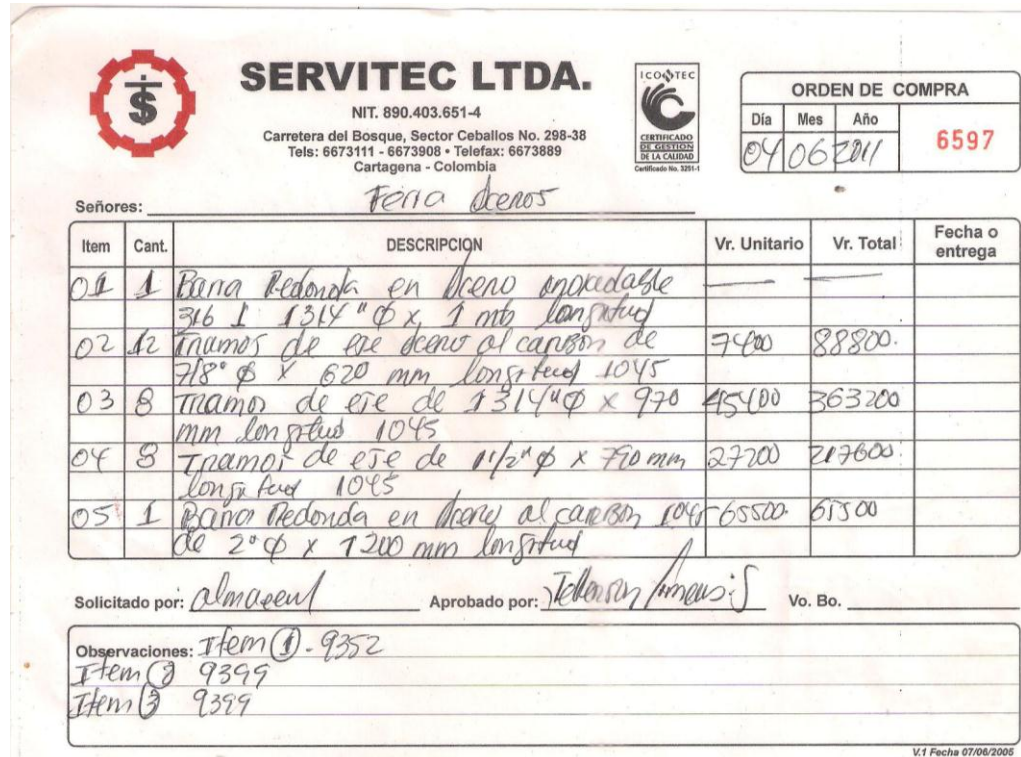 SERVITEC LTDA.
NIT. 890.403.651-4
Carretera del Bosque, Sector Ceballos No. 298-38
Tels: 6673111 - 6673908 • Telefax: 6673889
Cartagena - Colombia
ICONTEC
CERTIFICADO
DE GESTION
DE LA CALIDAD
Certificado No. 3251-1
ORDEN DE COMPRA
Día Mes Año
04 06 2011
6597
Señores: Ferro Aceros
Item Cant. DESCRIPCION Vr. Unitario Vr. Total Fecha o entrega
01 1 Barra Redonda en Acero inoxidable — —
316 L 1 3/4" Ø x 1 mt longitud
02 12 Tramos de eje acero al carbon de 7400 88800.
7/8" Ø x 620 mm longitud 1045
03 8 Tramos de eje de 1 3/4" Ø x 970 45400 363200
mm longitud 1045
04 8 Tramos de eje de 1 1/2" Ø x 790 mm 27200 217600
longitud 1045
05 1 Barra Redonda en Acero al carbon 1045 65500. 65500
de 2" Ø x 1200 mm longitud
Solicitado por: Almacen Aprobado por: Vo. Bo.
Observaciones: Item ① - 9352
Item ② 9399
Item ③ 9399
V.1 Fecha 07/06/2005